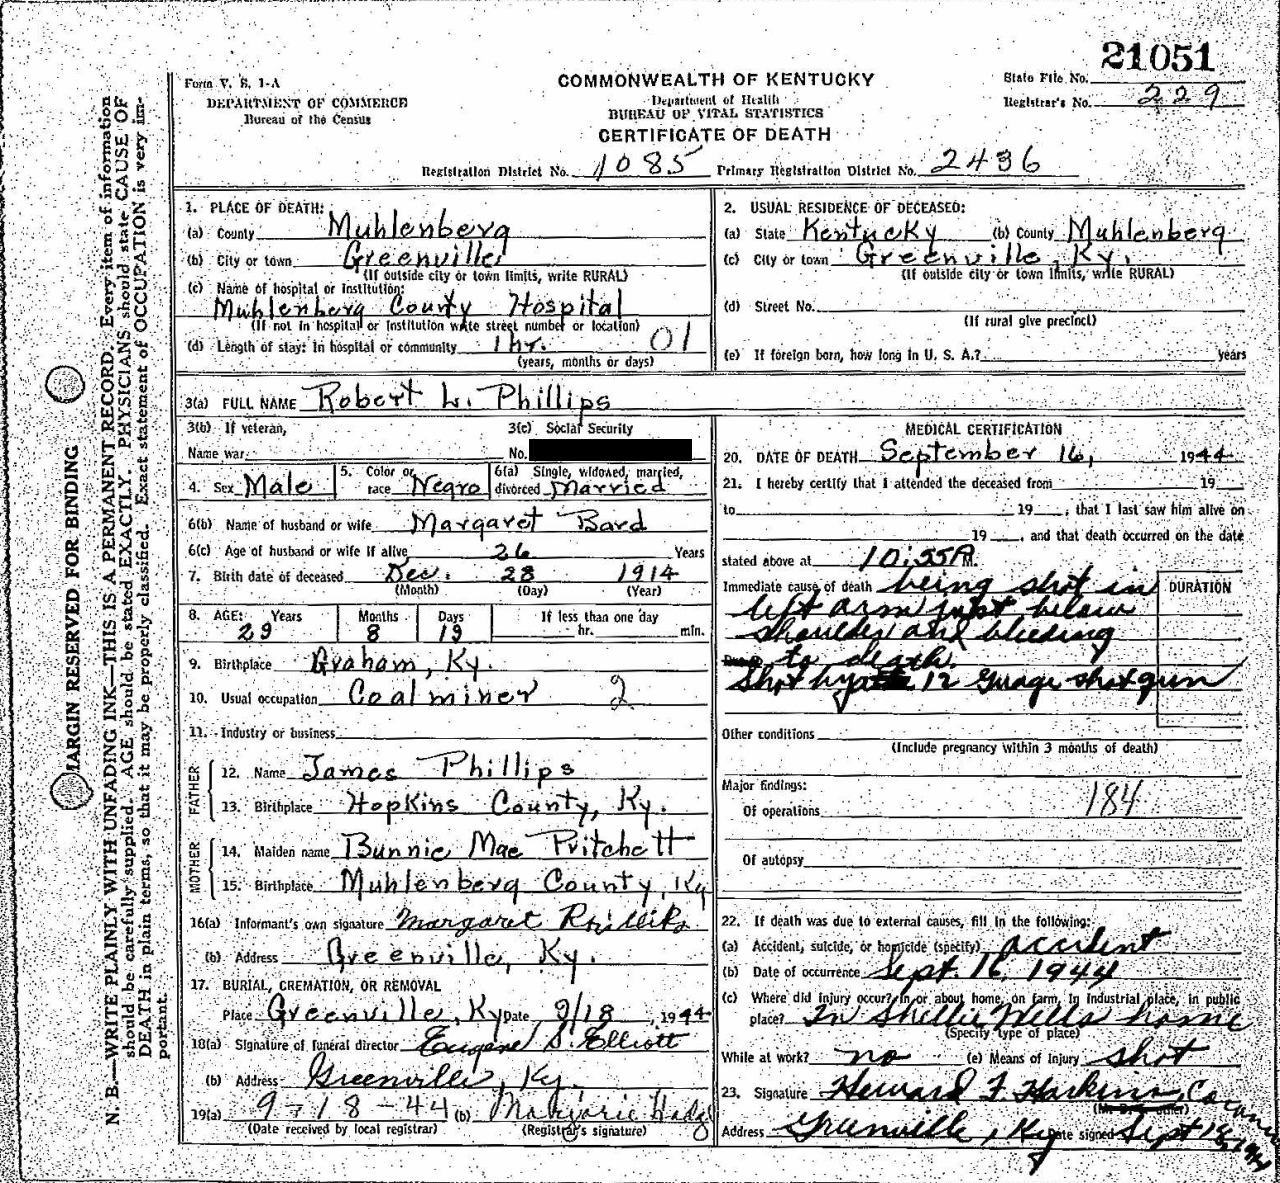 21051
Form V. S. 1-A
DEPARTMENT OF COMMERCE
Bureau of the Census
COMMONWEALTH OF KENTUCKY
Department of Health
BUREAU OF VITAL STATISTICS
CERTIFICATE OF DEATH
State File No.
Registrar's No. 229
Registration District No. 1085 Primary Registration District No. 2436
MARGIN RESERVED FOR BINDING
N. B.—WRITE PLAINLY WITH UNFADING INK—THIS IS A PERMANENT RECORD. Every item of information
should be carefully supplied. AGE should be stated EXACTLY. PHYSICIANS should state CAUSE OF
DEATH in plain terms, so that it may be properly classified. Exact statement of OCCUPATION is very im-
portant.
1. PLACE OF DEATH:
(a) County Muhlenberg
(b) City or town Greenville
(If outside city or town limits, write RURAL)
(c) Name of hospital or institution:
Muhlenberg County Hospital
(If not in hospital or institution write street number or location)
(d) Length of stay: In hospital or community 1 hr. 01
(years, months or days)
2. USUAL RESIDENCE OF DECEASED:
(a) State Kentucky (b) County Muhlenberg
(c) City or town Greenville, Ky.
(If outside city or town limits, write RURAL)
(d) Street No.
(If rural give precinct)
(e) If foreign born, how long in U. S. A.? years
3(a) FULL NAME Robert L. Phillips
3(b) If veteran,
Name war
3(c) Social Security
No.
4. Sex Male
5. Color or
race Negro
6(a) Single, widowed, married,
divorced Married
6(b) Name of husband or wife Margaret Bard
6(c) Age of husband or wife if alive 26 Years
7. Birth date of deceased Dec. 28 1914
(Month) (Day) (Year)
8. AGE: Years Months Days If less than one day
29 8 19 hr. min.
9. Birthplace Graham, Ky.
10. Usual occupation Coal miner 2
11. Industry or business
FATHER
12. Name James Phillips
13. Birthplace Hopkins County, Ky.
MOTHER
14. Maiden name Bunnie Mae Pritchett
15. Birthplace Muhlenberg County, Ky
16(a) Informant's own signature Margaret Phillips
(b) Address Greenville, Ky.
17. BURIAL, CREMATION, OR REMOVAL
Place Greenville, Ky Date 9/18, 1944
18(a) Signature of funeral director Eugene S. Elliott
(b) Address Greenville, Ky.
19(a) 9-18-44 (b) Marjorie
(Date received by local registrar) (Registrar's signature)
MEDICAL CERTIFICATION
20. DATE OF DEATH September 16, 1944
21. I hereby certify that I attended the deceased from 19
to 19 , that I last saw him alive on
19 , and that death occurred on the date
stated above at 10:55 P M.
Immediate cause of death being shot in
left arm just below
shoulder and bleeding
to death.
Shot by 12 Guage shotgun
DURATION
Other conditions
(Include pregnancy within 3 months of death)
Major findings:
Of operations 184
Of autopsy
22. If death was due to external causes, fill in the following:
(a) Accident, suicide, or homicide (specify) accident
(b) Date of occurrence Sept. 16, 1944
(c) Where did injury occur? In or about home, on farm, in industrial place, in public
place? In Shellie Wells home
(Specify type of place)
While at work? no (e) Means of injury shot
23. Signature F. Harkins, Coroner
Address Greenville, Ky Date signed Sept 18, 1944